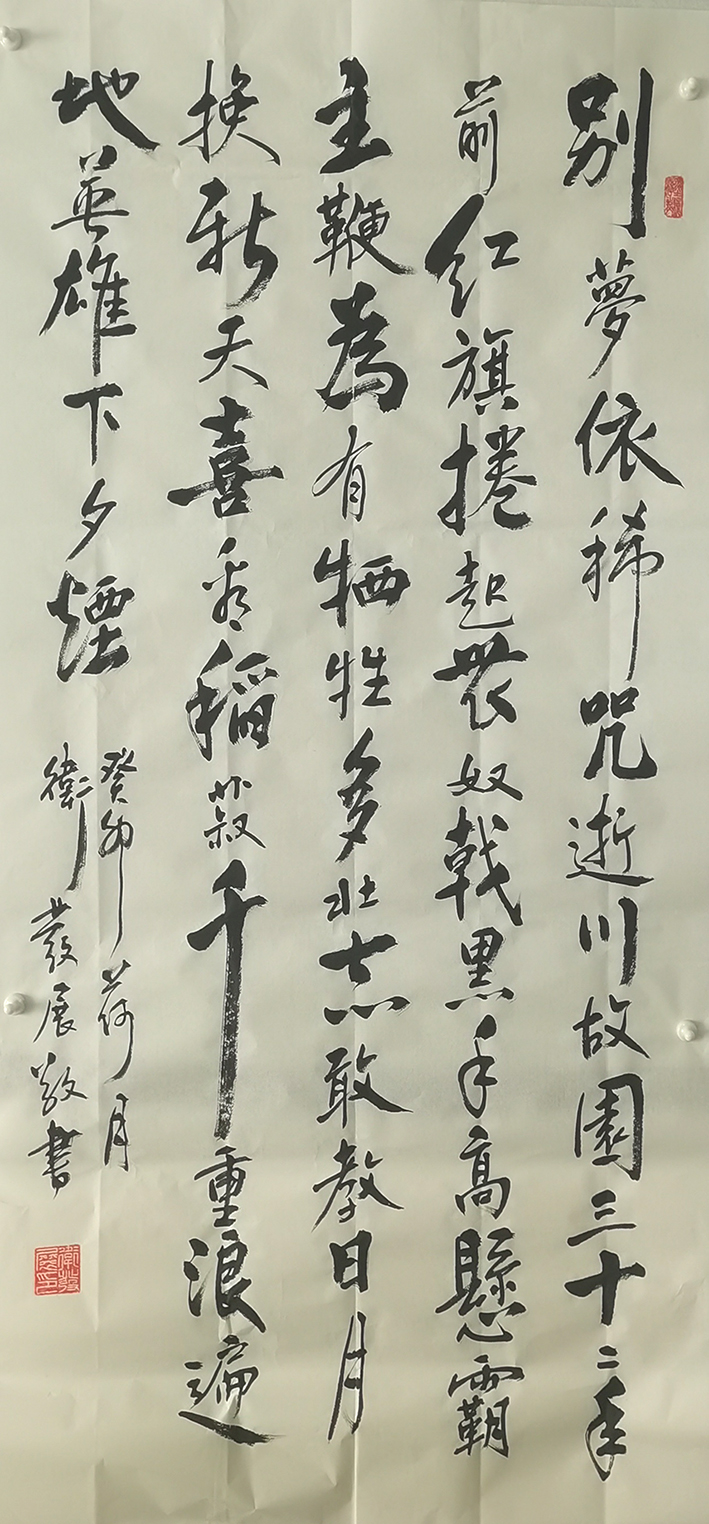 别夢依稀咒逝川故園三十二年
前红旗捲起農奴戟黑手高懸霸
主鞭為有牺牲多壮志敢教日月
换新天喜看稻菽千重浪遍
地英雄下夕煙
癸卯荷月
衛發展敬書